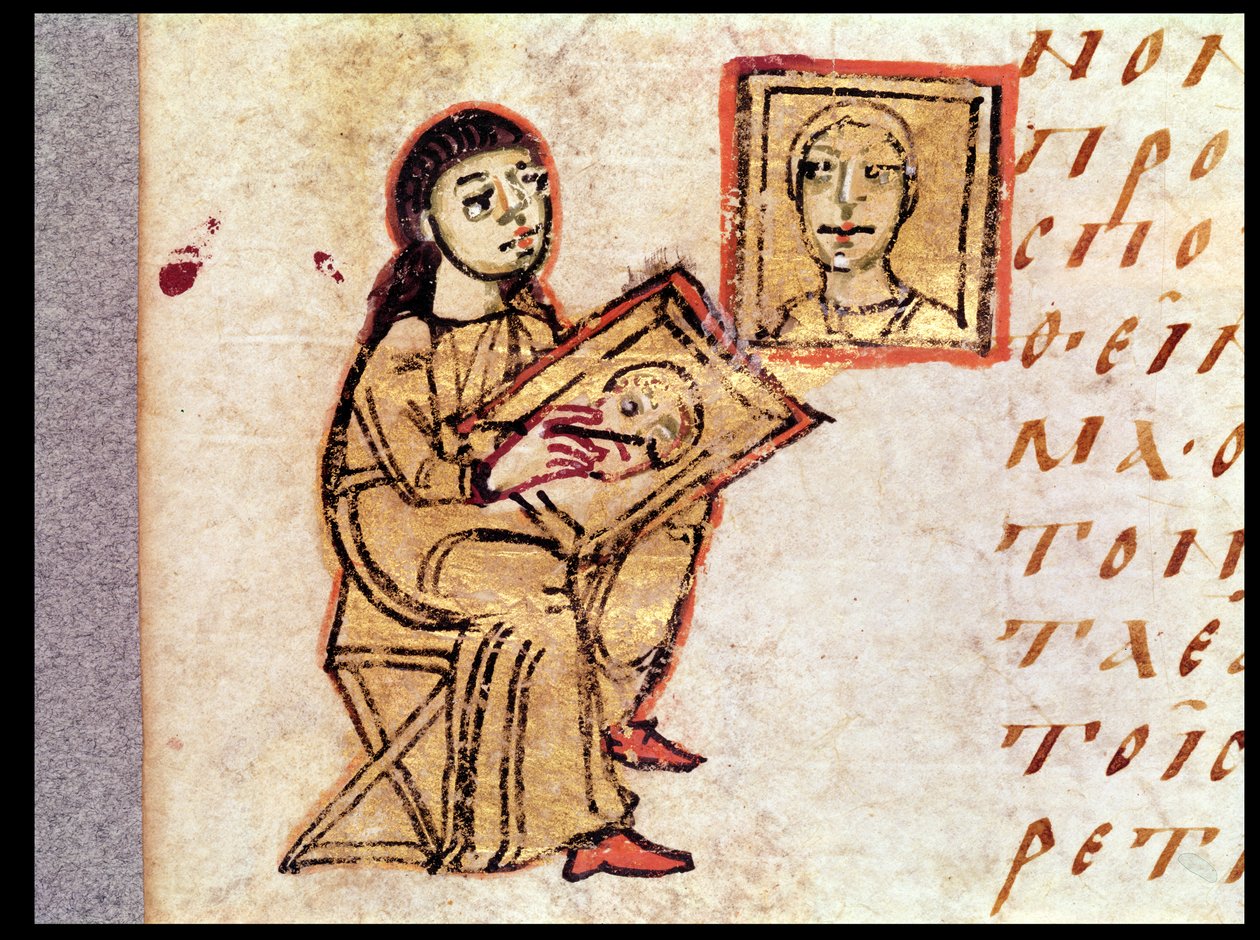 ΝΟΝ
ΠΡΟ
СΠΟ
Θ·ΕΙ͂Ν
ΜΑ·Ο
ΤΟΠ
ΤΑΕ
ΤΟΙ͂С
ΡΕΤ